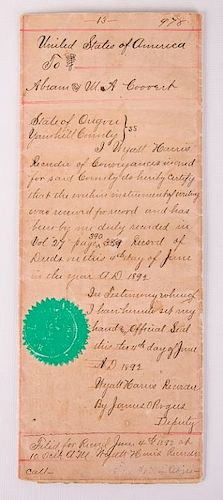 - 13 - 978
United States of America
To
Abram & M A Coovert
State of Oregon
Yamhill County } SS
I Wyatt Harris
Recorder of Conveyances in and
for said County do hereby certify
that the within instrument of writing
was received for record and has
been by me duly recorded in
Vol 27 page 390 Record of
Deeds on this 4th day of June
in the year A D 1892
In Testimony whereof
I have hereunto set my
hand & Official Seal
this the 4th day of June
A D 1892
Wyatt Harris Recorder
By James O Rogers
Deputy
Filed for Record June 4th 1892 at
10 Oclk A M Wyatt Harris Recorder
call